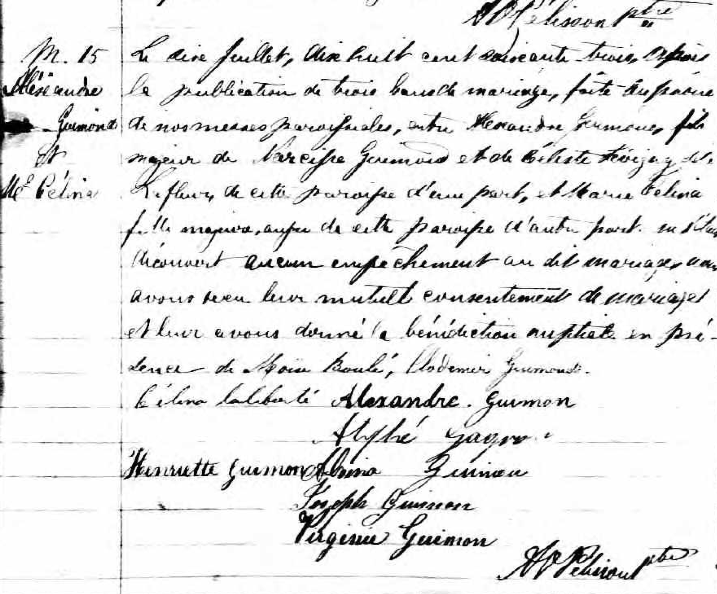 A V Pélisson ptre
M. 15
Alexandre
Guimond
et
Me Célina
Le dix Juillet, dix huit cent soixante trois, après
la publication de trois bans de mariage, faite au prône
de nos messes paroissiales, entre Alexandre Guimond, fils
majeur de Narcisse Guimond et de Céleste
Lafleur, de cette paroisse d'une part, et Marie Célina
fille majeure, aussi de cette paroisse d'autre part. ne s'étant
découvert aucun empêchement au dit mariage, nous
avons reçu leur mutuel consentement de mariage
et leur avons donné la bénédiction nuptiale en pré-
sence de Moïse Boulé, Clodomir Guimond.
Célina laliberté Alexandre. Guimon
Alphé
Henriette Guimon Albina Guimon
Joseph Guimon
Virginie Guimon
A V Pélisson ptre